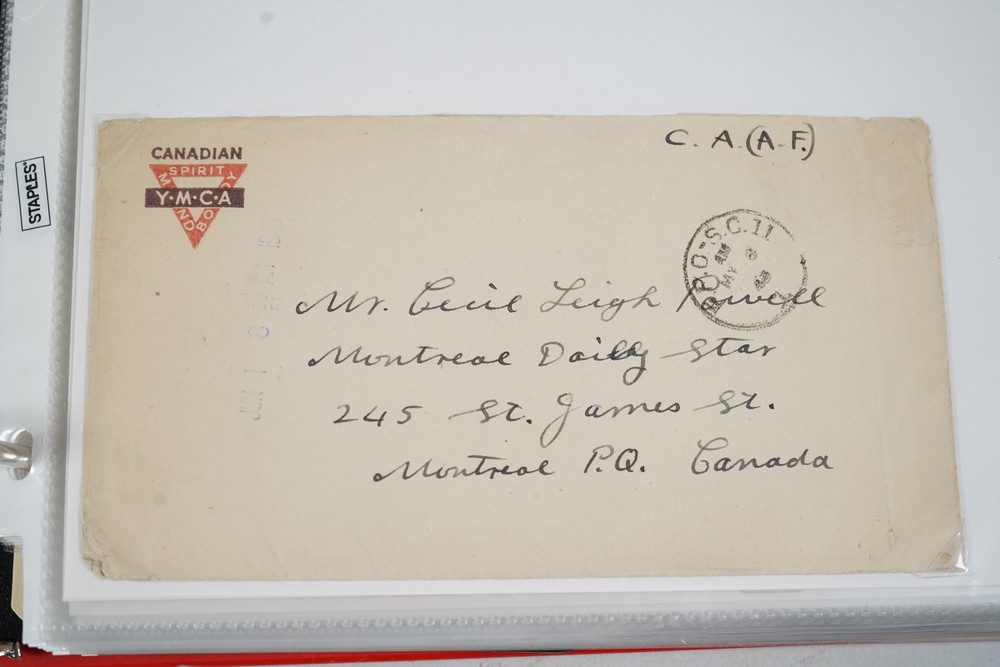 C. A. (A.F.)
CANADIAN
SPIRIT
MIND
BODY
Y·M·C·A
F.P.O-S.C.11
AM
MY
JUN 1 8
Mr. Cecil Leigh Powell
Montreal Daily Star
245 St. James St.
Montreal P.Q. Canada
STAPLES